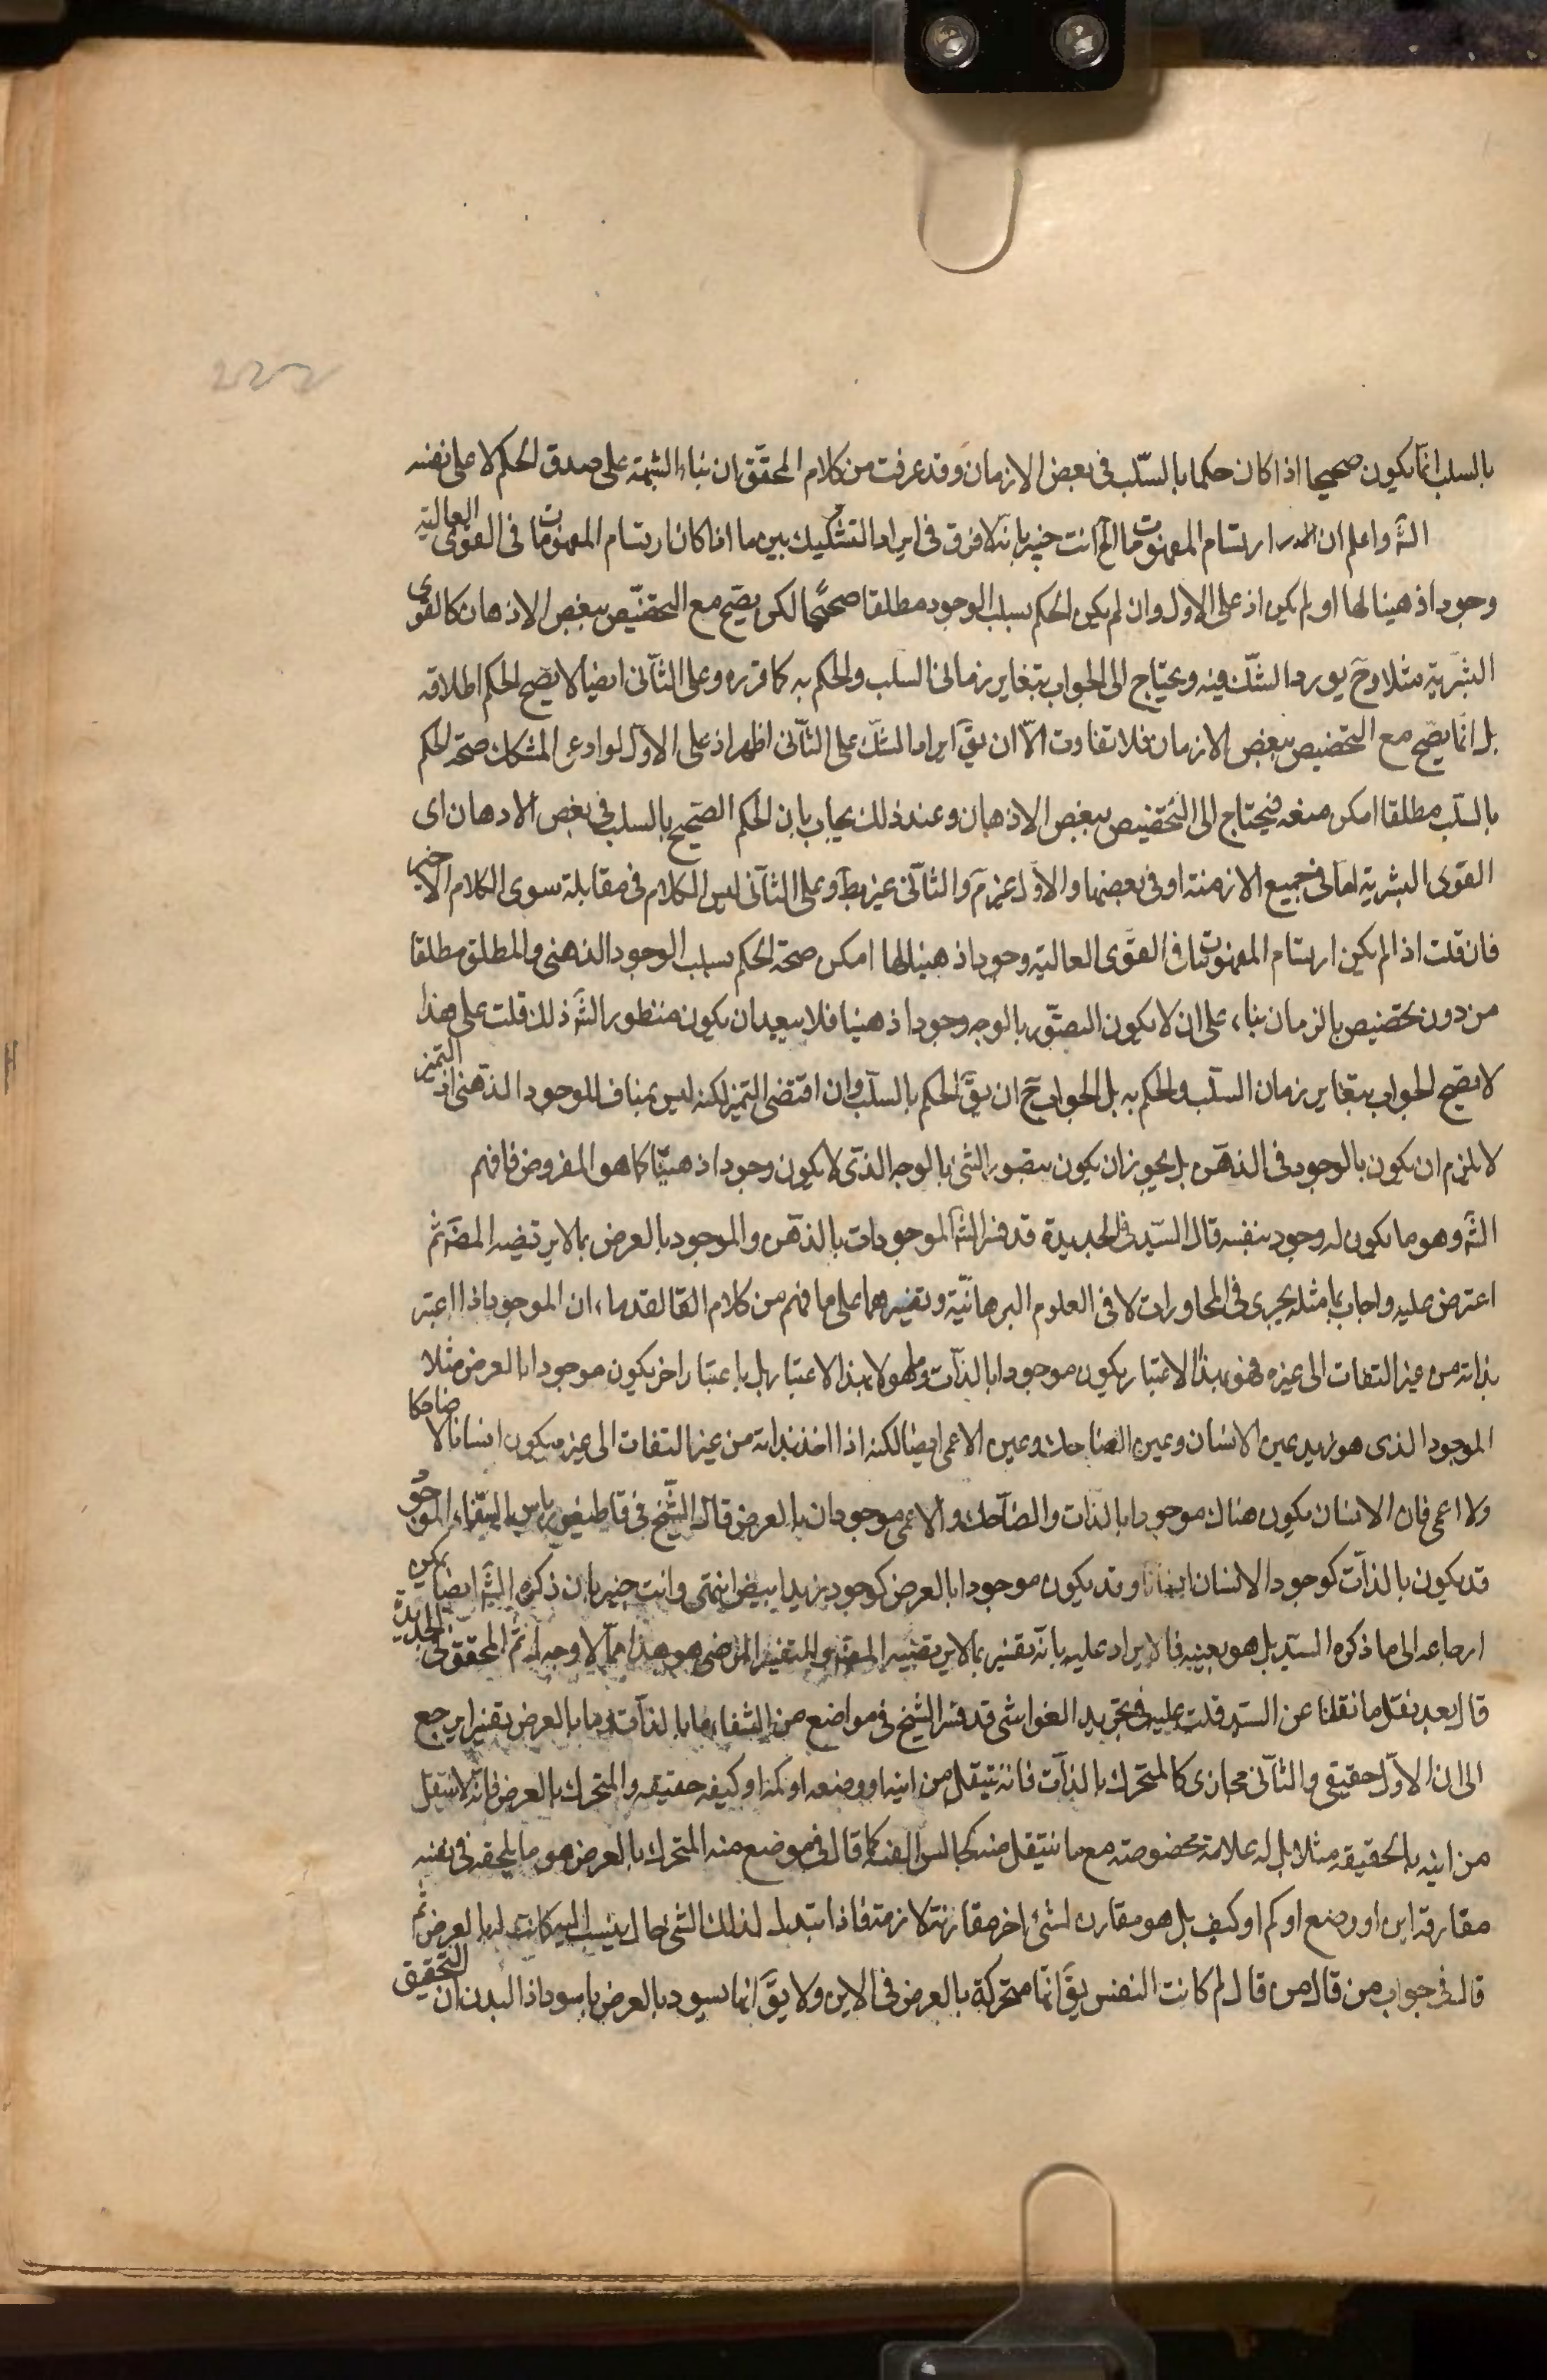 222
بالسلب انما يكون صحيحا اذا كان حكما بالسلب فى بعض الازمان وقد عرفت من كلام المحقق ان بناء الشبهة على صدق الحكم لا على نفسه
الشَ واعلم ان ارتسام المفهومات ما الخ انت خبير بانه لا فرق فى ايراد التشكيك بين ما اذا كان ارتسام المفهومات فى القوى العالية
وجودا ذهنيا لها او لم يكن اذ على الاول وان لم يكن الحكم بسلب الوجود مطلقا صحيحا لكن يصح مع التخصيص ببعض الاذهان كالقوى
البشرية مثلا وح يورد الشك فيه ويحتاج الى الجواب بتغاير زمانى السلب والحكم به كما قرره وعلى الثانى ايضا لا يصح الحكم اطلاقه
بل انما يصح مع التخصيص ببعض الازمان فلا تفاوت الا ان يق ايراد الشك على الثانى اظهر اذ على الاول لو ادعى المشكك صحة الحكم
بالسلب مطلقا امكن منعه فيحتاج الى التخصيص ببعض الاذهان وعند ذلك يجاب بان الحكم الصحيح بالسلب فى بعض الاذهان اى
القوى البشرية اما فى جميع الازمنة او فى بعضها والاول غير م والثانى غير بط وعلى الثانى ليس الكلام فى مقابلة سوى الكلام الاخير
فان قلت اذا لم يكن ارتسام المفهومات فى القوى العالية وجودا ذهنيا لها امكن صحة الحكم بسلب الوجود الذهنى والمطلق مطلقا
من دون تخصيص بالزمان بناء على ان لا يكون التصور بالوجه وجودا ذهنيا فلا يبعد ان يكون منظور الشَ ذلك قلت على هذا
لا يصح الجواب بتغاير زمان السلب والحكم به بل الجواب ح ان يق الحكم بالسلب وان اقتضى التميز لكنه ليس بمناف للوجود الذهنى اذ التميز
لا يلزم ان يكون بالوجود فى الذهن بل يجوز ان يكون بتصور الشئ بالوجه الذى لا يكون وجودا ذهنيا كما هو المفروض فافهم
الشَ وهو ما يكون له وجود بنفسه قال السيد فى الجديدة قد فسر الشَ الموجودات بالذهن والموجود بالعرض بما لا يرتضيه المصَ ثم
اعترض عليه واجاب بما مثله يجرى فى المحاورات لا فى العلوم البرهانية وتفسيرهما على ما فهم من كلام القدماء ان الموجود اذا اعتبر
بذاته من غير التفات الى غيره فهو بهذا الاعتبار يكون موجودا بالذات وما هو لا بهذا الاعتبار بل باعتبار اخر يكون موجودا بالعرض مثلا
الموجود الذى هو زيد عين الانسان وعين الضاحك وعين الاعمى ايضا لكنه اذا اخذ بذاته من غير التفات الى غيره يكون انسانا لا ضاحكا
ولا اعمى فان الانسان يكون هناك موجودا بالذات والضاحك والاعمى موجودان بالعرض قال الشيخ فى قاطيغورياس الشفاء الموجود
قد يكون بالذات كوجود الانسان انسانا وقد يكون موجودا بالعرض كوجود زيد ابيض انتهى وانت خبير بان ذكره الشَ ايضا يمكن
ارجاعه الى ما ذكره السيد بل هو بعينه فالايراد عليه بانه تفسير بما لا يرتضيه المصَ والتفسير المرضى هو هذا مما لا وجه له ثم المحقق فى الجديدة
قال بعد نقل ما نقلنا عن السيد قلت عليه فى تجريد الغواشى قد فسر الشيخ فى مواضع من الشفاء ما بالذات وما بالعرض تفسيرا يرجع
الى ان الاول حقيقى والثانى مجازى كالمتحرك بالذات فانه ينتقل من اينه او وضعه او كمه او كيفه حقيقة والمتحرك بالعرض فانه لا ينتقل
من اينه بالحقيقة مثلا بل له علاقة مخصوصة مع ما ينتقل منه كجالس السفينة كما قال فى موضع منه المتحرك بالعرض هو ما يلحقه فى نفسه
مفارقة اين او وضع او كم او كيف بل هو مقارن لشئ اخر مقارنة لازمة فاذا تبدل لذلك الشئ حال ينسب اليه كانت له بالعرض ثم
قال فى جواب من قال من قال لم كانت النفس يق انها متحركة بالعرض فى الاين ولا يق انها تسود بالعرض باسوداد البدن ان التحقيق